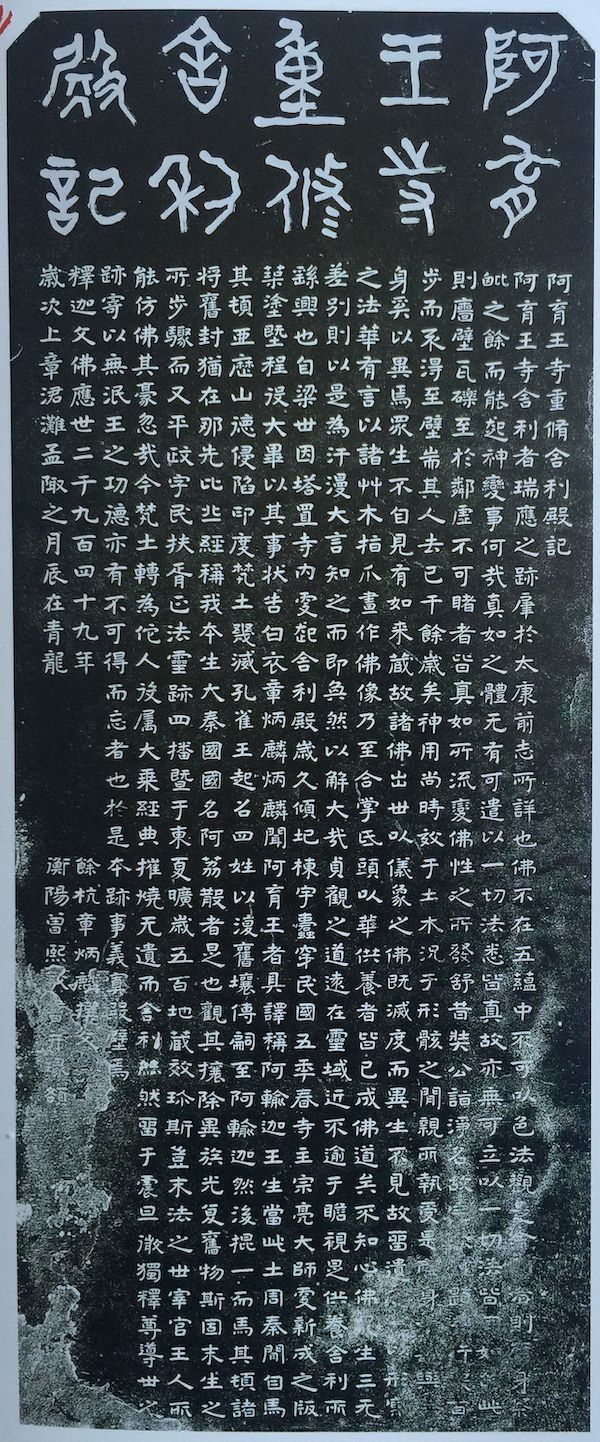 阿育
王寺
重修
舍利
殿記
阿育王寺重脩舍利殿記
阿育王寺舍利者瑞應之跡肇於太康前志所詳也佛不在五蘊中不可以色法觀是舍則身於
毗之餘而能起神變事何哉真如之體无有可遣以一切法悉皆真故亦無可立以一切法皆如此
則廧壁瓦礫至於鄰虛不可睹者皆真如所流變佛性之所發舒昔奘公詣淨名故題百
步而衺淂至壁耑其人去已千餘歲矣神用尚時效于土木況于形骸之閒親所執愛果身與
身奚以異焉眾生不自見有如来蔵故諸佛出世以儀象之佛既滅度而異生不見故畱遺形寘
之法華有言以諸艸木指爪畫作佛像乃至合掌氐頭以華供養者皆已成佛道矣不知心佛生三无
差别則以是為汗漫大言知之而即奐然以解大哉貞觀之道遠在靈域近不逾于瞻視是供養舍利所
繇興也自梁世因塔置寺内更起舍利殿歲久傾圮棟宇蠹穿民國五秊春寺主宗亮大師更新成之版
塗塈程役大畢以其事狀告白衣章炳麟炳麟聞阿育王者具譯稱阿輸迦王生當此土周秦閒自馬
其頓亞歷山德侵陷印度梵土殘滅孔雀王起名四姓以復舊壤傳嗣至阿輸迦然後掍一而馬其頓諸
将舊封猶在那先比丘經稱我本生大秦國國名阿荔散者是也觀其攘除異族光复舊物斯固末生之
所步驟而又平政字民扶胥正法靈跡四播暨于東夏曠歲五百地蔵效珍斯豈末法之世宰官王人所
能仿佛其豪忽哉今梵土轉為佗人役屬大乘經典摧燒无遺而舍利巋然畱于震旦微獨釋尊導世之
跡寄以無泯王之功德亦有不可得而忘者也於是夲跡事義寘殿壁焉
釋迦文佛應世二千九百四十九年 餘杭章炳麟撰文
歲次上章涒灘孟陬之月辰在青龍 衡陽曾熙書并篆額